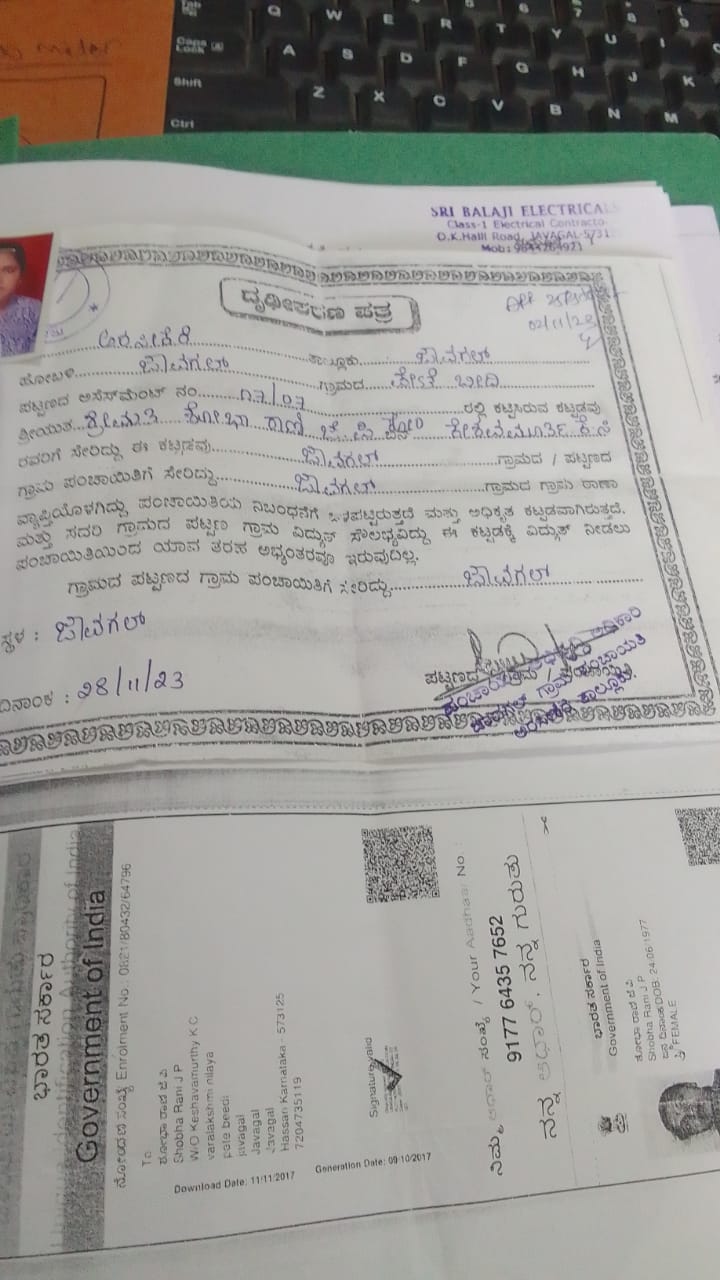 Caps Lock
Q W E R T Y U I
A S D F G H J K
Shift
Z X C V B N M
Ctrl
SRI BALAJI ELECTRICA
Class-1 Electrical Contracto
O.K.Halli Road, JAVAGAL-5731
Mob:
ದೃಢೀಕರಣ ಪತ್ರ
02/11/23
ಹೋಬಳಿ ಜಾವಗಲ್ ತಾಲ್ಲೂಕು ಜಾವಗಲ್
ಪಟ್ಟಣದ ಅಸೆಸ್‌ಮೆಂಟ್ ನಂ. ಗ್ರಾಮದ ಬೀದಿ
ರಲ್ಲಿ ಕಟ್ಟಿಸಿರುವ ಕಟ್ಟಡವು
ಶ್ರೀಯುತ ಶ್ರೀಮತಿ ಶೋಭಾ ರಾಣಿ ಜೆ ಪಿ ಕೋಂ ಕೇಶವಮೂರ್ತಿ ಕೆ ಸಿ
ರವರಿಗೆ ಸೇರಿದ್ದು ಈ ಕಟ್ಟಡವು ಜಾವಗಲ್ ಗ್ರಾಮದ / ಪಟ್ಟಣದ
ಗ್ರಾಮ ಪಂಚಾಯಿತಿಗೆ ಸೇರಿದ್ದು ಜಾವಗಲ್ ಗ್ರಾಮದ ಗ್ರಾಮ ಠಾಣಾ
ವ್ಯಾಪ್ತಿಯೊಳಗಿದ್ದು ಪಂಚಾಯಿತಿಯ ನಿಬಂಧನೆಗೆ ಒಳಪಟ್ಟಿರುತ್ತದೆ ಮತ್ತು ಅಧಿಕೃತ ಕಟ್ಟಡವಾಗಿರುತ್ತದೆ.
ಮತ್ತು ಸದರಿ ಗ್ರಾಮದ ಪಟ್ಟಣ ಗ್ರಾಮ ವಿದ್ಯುತ್ ಸೌಲಭ್ಯವಿದ್ದು ಈ ಕಟ್ಟಡಕ್ಕೆ ವಿದ್ಯುತ್ ನೀಡಲು
ಪಂಚಾಯಿತಿಯಿಂದ ಯಾವ ತರಹ ಅಭ್ಯಂತರವೂ ಇರುವುದಿಲ್ಲ.
ಗ್ರಾಮದ ಪಟ್ಟಣದ ಗ್ರಾಮ ಪಂಚಾಯಿತಿಗೆ ಸೇರಿದ್ದು ಜಾವಗಲ್
ಸ್ಥಳ : ಜಾವಗಲ್
ದಿನಾಂಕ : 28/11/23
ಭಾರತ ಸರ್ಕಾರ
Government of India
ನೋಂದಣಿ ಸಂಖ್ಯೆ Enrolment No.: 0821/80432/64796
To
ಶೋಭಾ ರಾಣಿ ಜೆ ಪಿ
Shobha Rani J P
W/O Keshavamurthy K C
varalakshmi nilaya
pete beedi
javagal
Javagal
Javagal
Hassan Karnataka - 573125
7204735119
Download Date: 11/11/2017
Generation Date: 09/10/2017
Signature valid
ನಿಮ್ಮ ಆಧಾರ್ ಸಂಖ್ಯೆ / Your Aadhaar No. :
9177 6435 7652
ನನ್ನ ಆಧಾರ್, ನನ್ನ ಗುರುತು
ಭಾರತ ಸರ್ಕಾರ
Government of India
ಶೋಭಾ ರಾಣಿ ಜೆ ಪಿ
Shobha Rani J P
ಜನ್ಮ ದಿನಾಂಕ/DOB: 24/06/1977
FEMALE